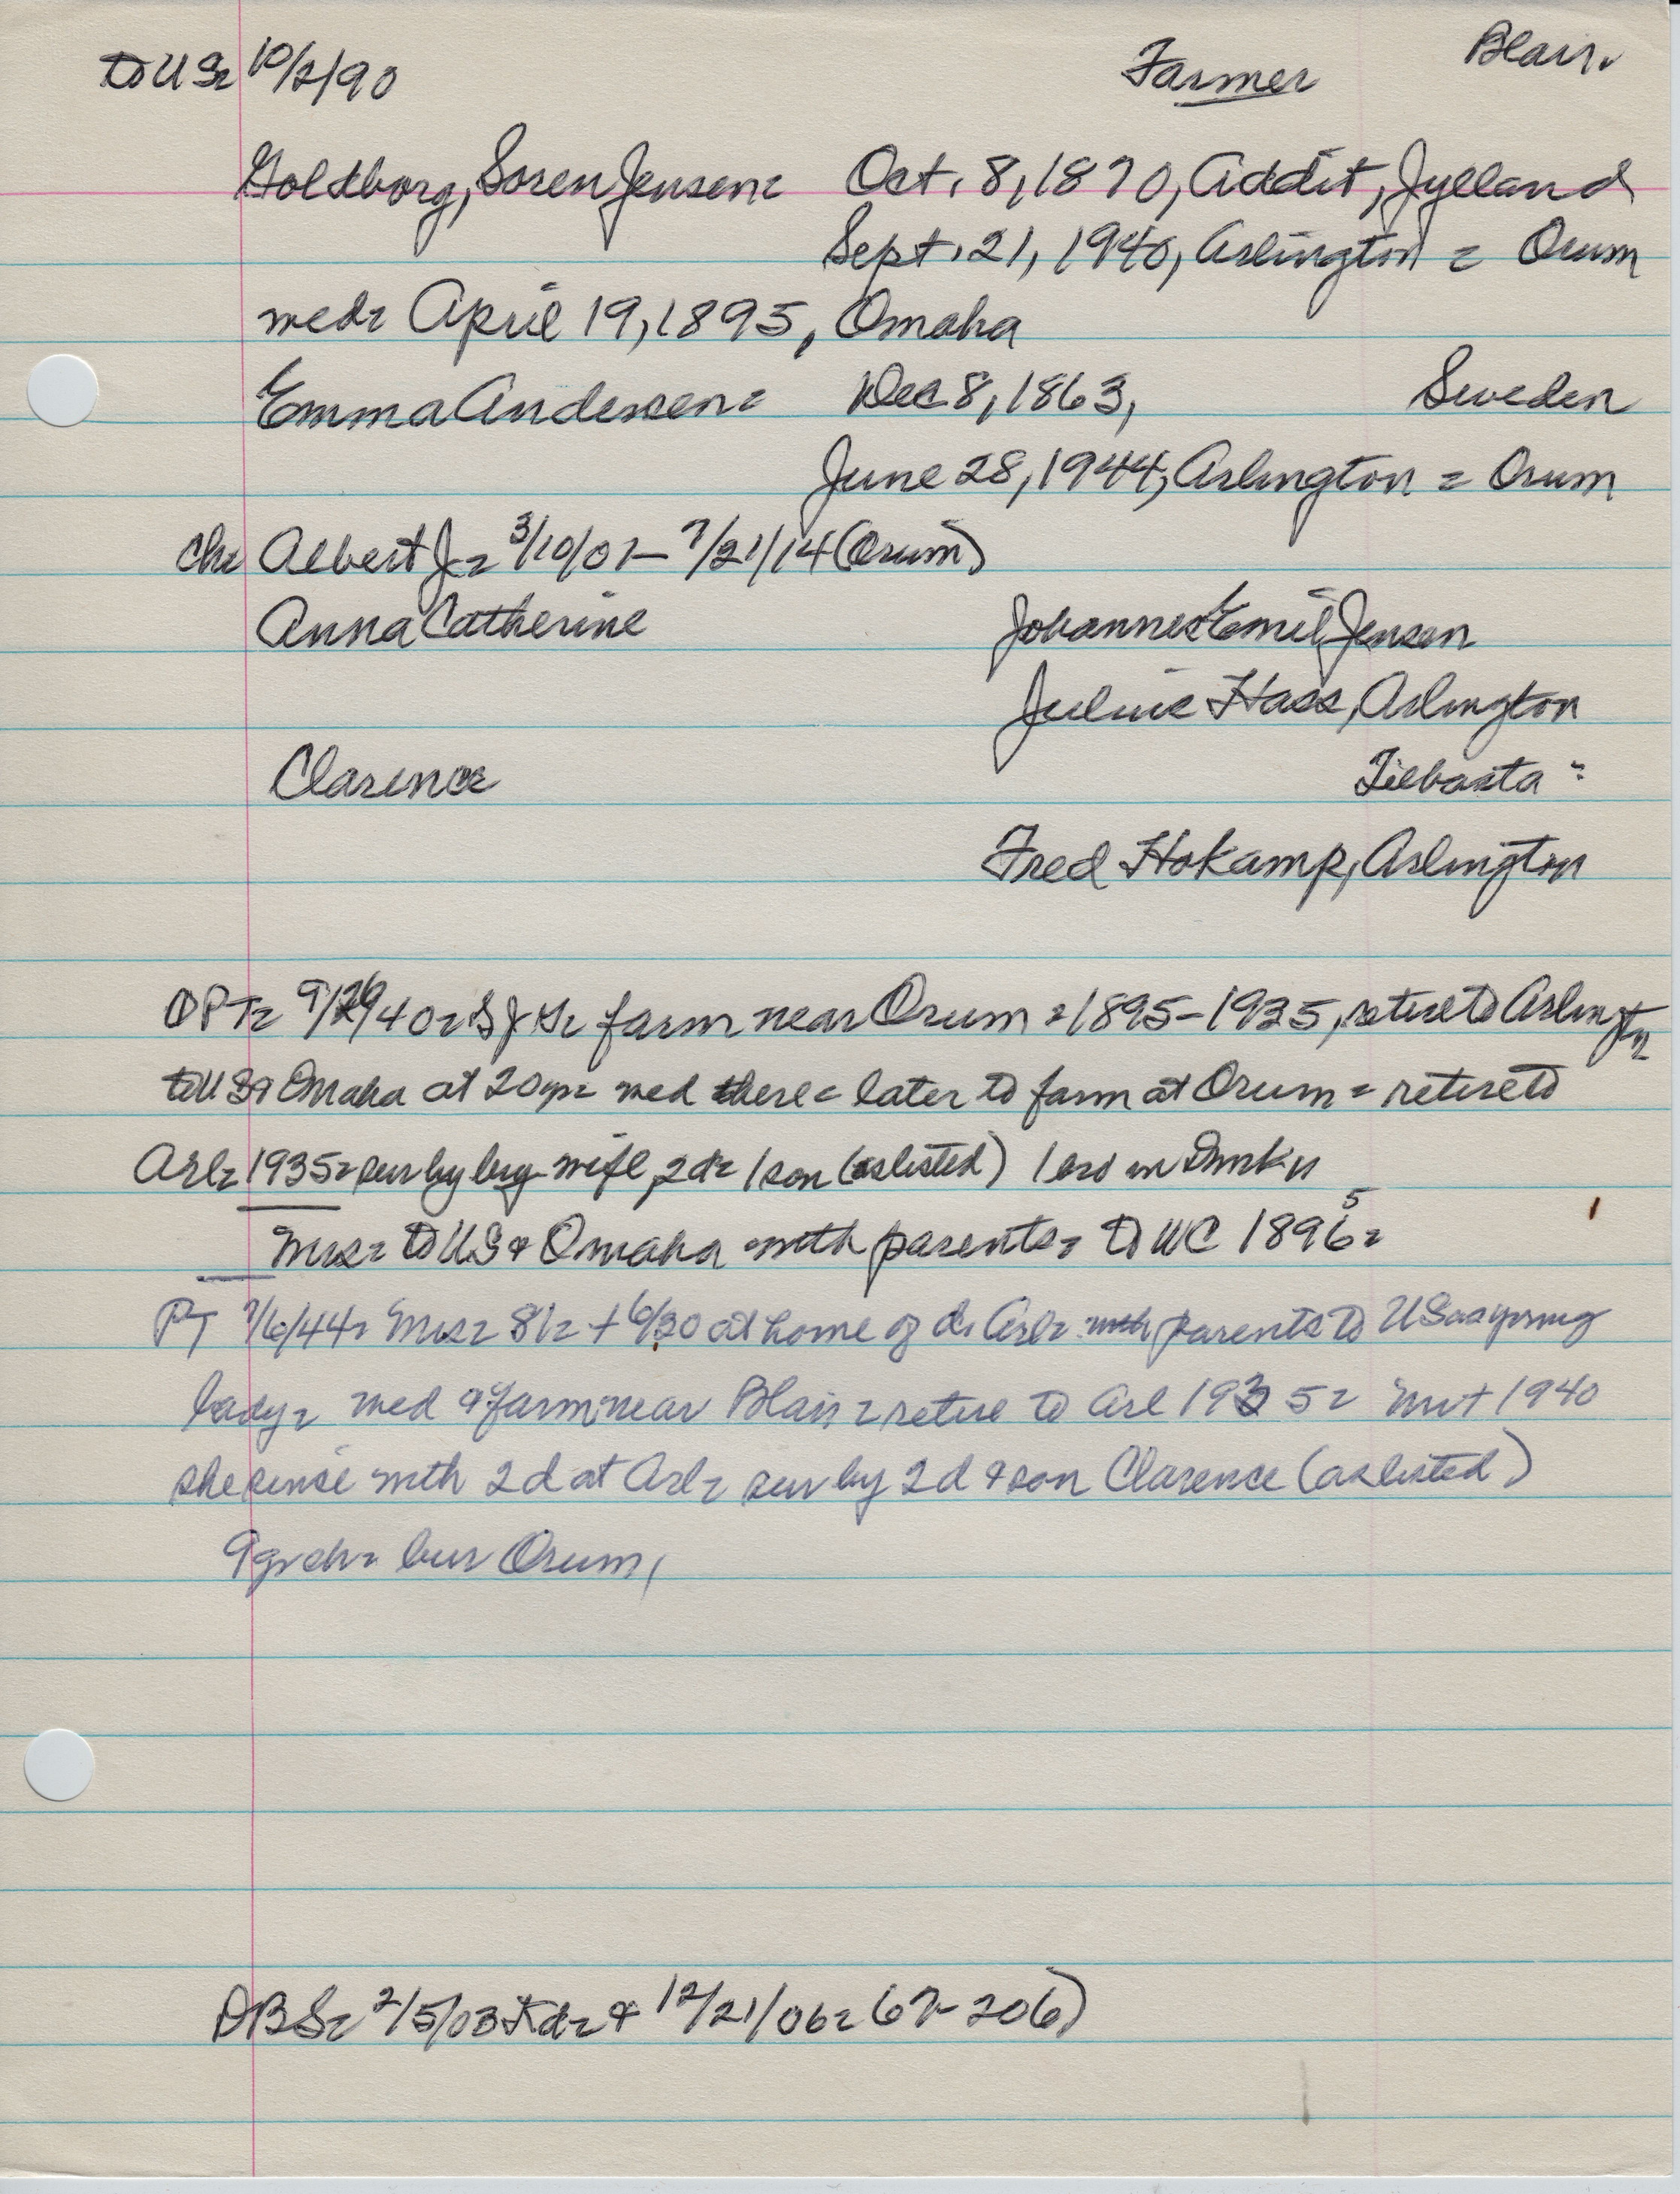 to US= 10/2/90 Farmer Blair.
Goldborg, Soren Jensen= Oct. 8, 1870, Addit, Jylland
Sept. 21, 1940, Arlington = Orum
med= April 19, 1895, Omaha
Emma Andersen= Dec 8, 1863, Sweden
June 28, 1944, Arlington = Orum
ch= Albert J= 3/10/01-7/21/14 (Orum)
Anna Catherine Johannes Emil Jensen
Julius Hass, Arlington
Clarence =
Fred Hokamp, Arlington
DPT= 9/26/40= farm near Orum = 1895-1935, retire to Arlington
to US & Omaha at 20yr= med there = later to farm at Orum = retire to
Arl= 1935= sur by wife, 2d= 1 son (as listed) 1 bro in Dmk
Mrs= to US & Omaha with parents= to WC 1895=
PT 7/6/44= Mrs= 81= + 6/30 at home of d. Arl= with parents to US as young
lady= med & farm near Blair = retire to Arl 1935= mr + 1940
she since with 2d at Arl= sur by 2d & son Clarence (as listed)
9 grch= bur Orum,
DBS= 2/5/03 & 12/21/06= (67-206)